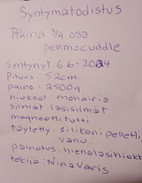 Syntymätodistus
Akina 3/4 osa
pehmocuddle
Syntynyt 6.6-2024
Pituus: 52cm.
paino: 2400g
hiukset mohairia
silmät lasisilmät
magneetti tutti
täytetty: silikoni pelletti
vanu.
painotus hienolasihiekka
tekijä: Nina Varis